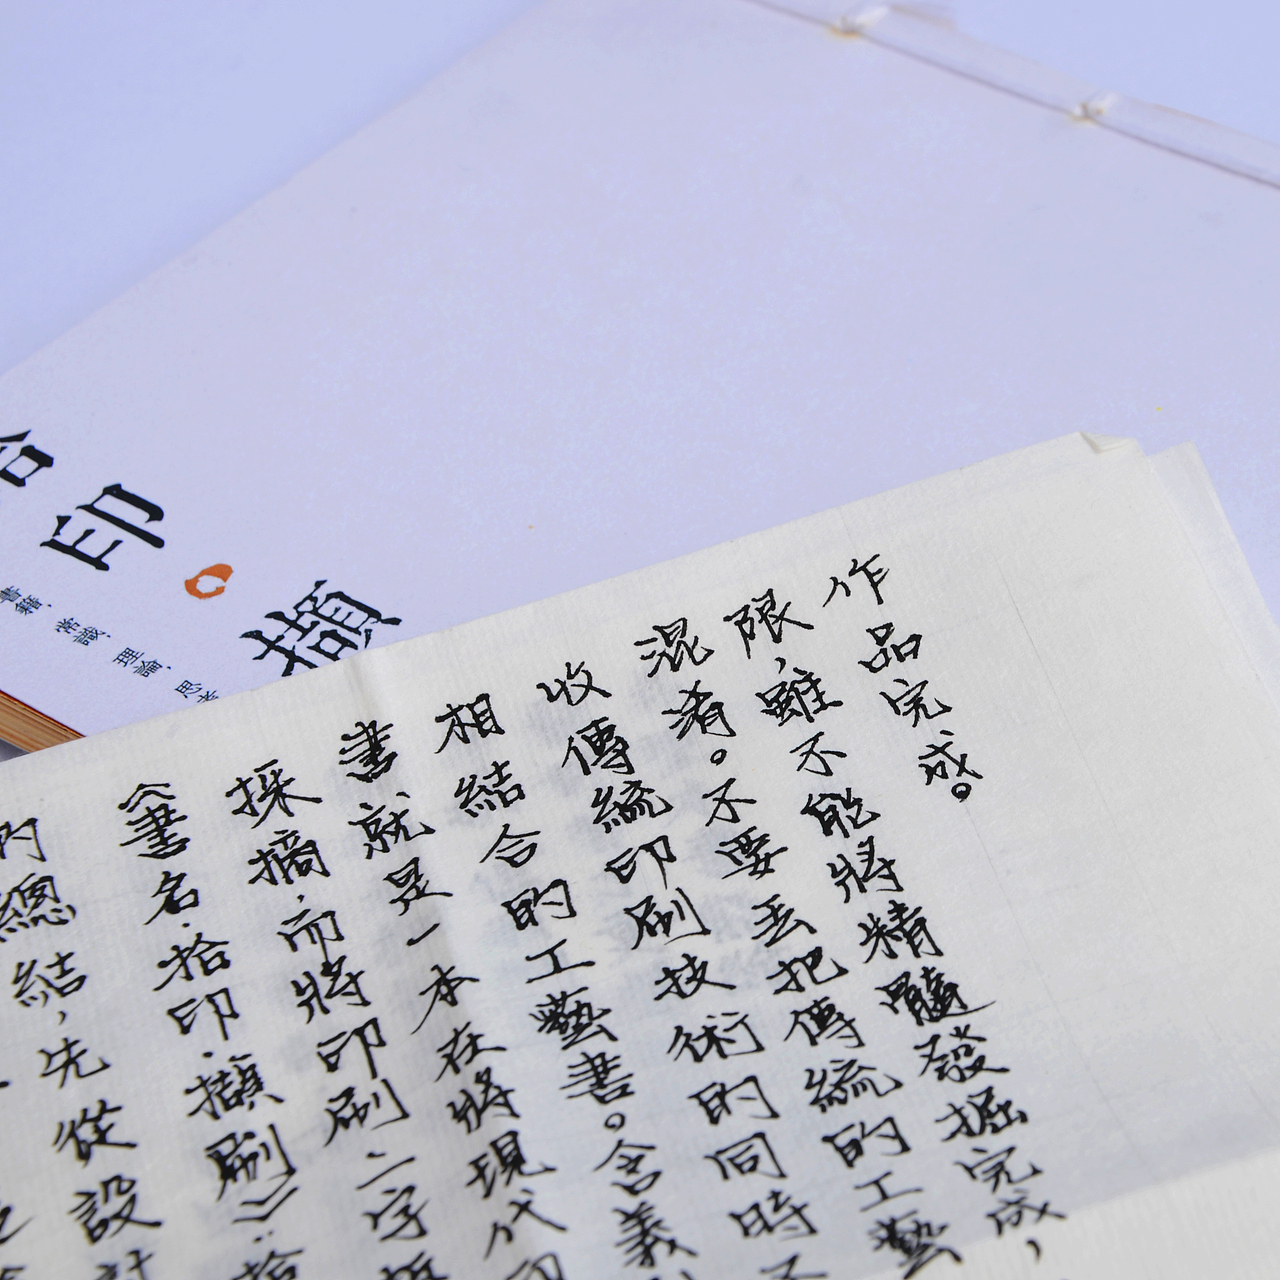 印
擷
書籍、常識、理論、思
作品完成。
限,雖不能將精髓發掘完成,
混淆。不要丟把傳統的工藝
收傳統印刷技術的同時不
相結合的工藝書。含義
書就是一本在將現代
採摘,而將印刷二字
《書名·拾印·擷刷》:拾
內總結,先從設計